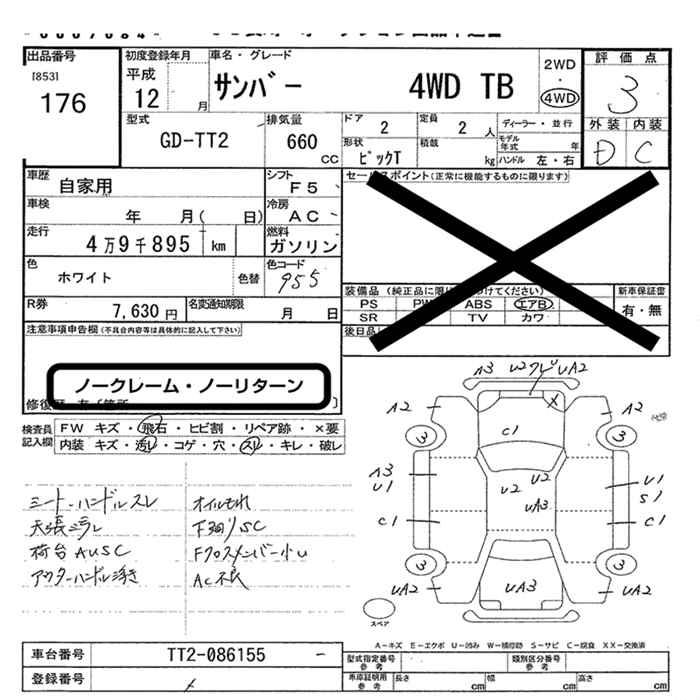 出品番号
[853]
176
初度登録年月
平成
12 月
車名・グレード
サンバー 4WD TB
2WD
・
4WD
評価点
3
外装 内装
D C
型式
GD-TT2
排気量
660
cc
ドア
2
定員
2 人
ディーラー・並行
モデル年式 年
形状
ピックT
積載
kg
ハンドル 左・右
車歴
自家用
シフト
F5
セールスポイント(正常に機能するものに限ります)
車検
年 月( 日)
冷房
AC
走行
4万9千895 km
燃料
ガソリン
色
ホワイト
色替
色コード
955
装備品(純正品に限り
けてください)
PS PW ABS エアB
SR TV カワ
新車保証書
有・無
R券
7,630円
名変通知期限
月 日
後日品
注意事項申告欄(不具合内容等は具体的に記入して下さい)
ノークレーム・ノーリターン
検査員記入欄
FW キズ・飛石・ヒビ割・リペア跡・×要
内装 キズ・汚レ・コゲ・穴・スレ・キレ・破レ
シート・ハンドルスレ
オイルモレ
下廻リSC
荷台AUSC
Fクロスメンバー小U
AC不良
A3 U2 UA2
A2 A2
3 3
C1
A3
U1
U2 U2
UA3
U1
S1
C1 C1
3 3
UA2 UA3 UA2
スペア
A-キズ E-エクボ U-凹み W-補修跡 S-サビ C-腐食 XX-交換済
車台番号
TT2-086155 -
型式指定番号
参考
類別区分番号
参考
登録番号
車庫証明用
参考
長さ cm
幅 cm
高さ cm